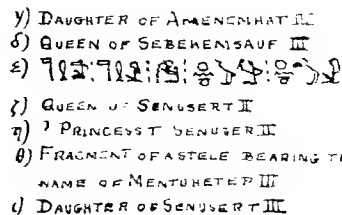 γ) DAUGHTER OF AMENEMHAT III
δ) QUEEN OF SEBEKEMSAUF III
ε)
ζ) QUEEN OF SENUSERT II
η) ? PRINCESS T SENUSER II
θ) FRAGMENT OF A STELE BEARING
NAME OF MENTUHETEP III
ι) DAUGHTER OF SENUSERT III